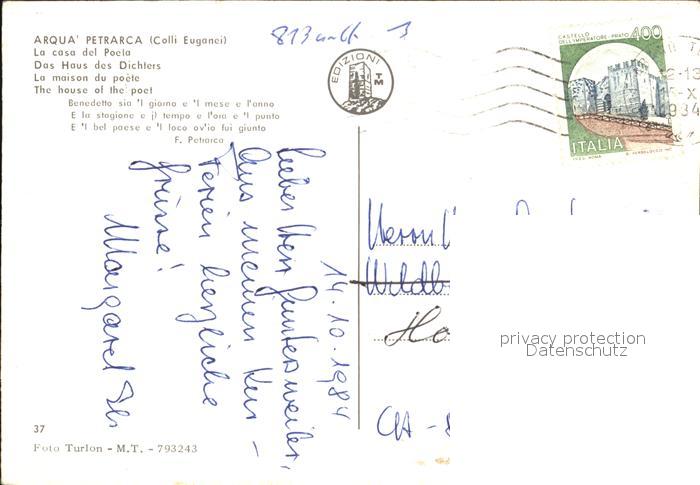 ARQUA' PETRARCA (Colli Euganei)
La casa del Poeta
Das Haus des Dichters
La maison du poète
The house of the poet
Benedetto sia 'l giorno e 'l mese e l'anno
E la stagione e il tempo e l'ora e 'l punto
E 'l bel paese e 'l loco ov'io fui giunto
F. Petrarca
EDIZIONI
TM
CASTELLO
DELL'IMPERATORE - PRATO
400
ITALIA
14.10.1984
Lieber Herr
Aus meinen Kurz-
ferien herzliche
Grüsse!
Margaret
Herrn
Wildb
Ho
CH -
privacy protection
Datenschutz
37
Foto Turlon - M.T. - 793243